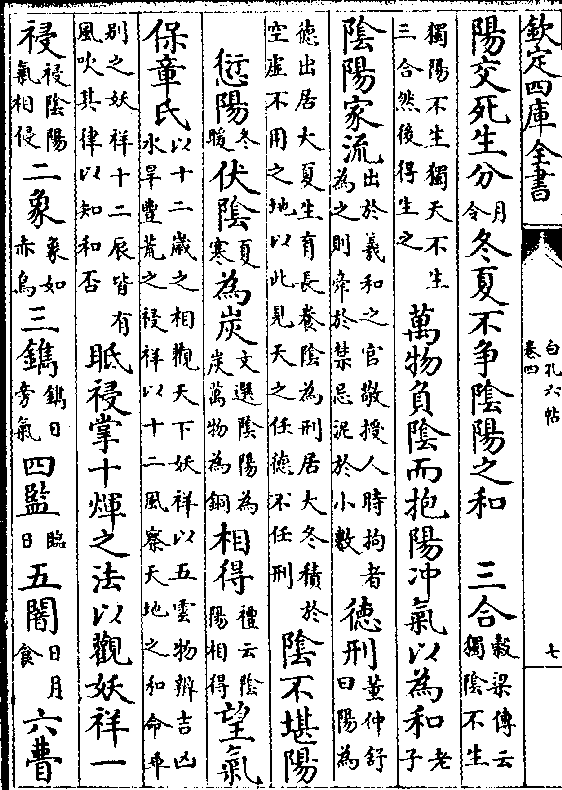 欽定四庫全書
白孔六帖
卷四
七
陽交死生分月令冬夏不争陰陽之和 三合榖梁傳云獨陰不生
獨陽不生獨天不生三合然後得生之萬物負陰而抱陽冲氣以為和老子
陰陽家流出於羲和之官敬授人時拘者為之則舜於禁忌泥於小數德刑董仲舒曰陽為
德出居大夏生有長養陰為刑居大冬積於空虛不用之地以此見天之任德不任刑陰不堪陽
愆陽冬暖伏陰夏寒為炭文選陰陽為炭萬物為銅相得禮云陰陽相得望氣
保章氏以十二歲之相觀天下妖祥以五雲物辨吉凶水旱豐荒之祲祥以十二風察天地之和命乖
别之妖祥十二辰皆有風吹其律以知和否眡祲掌十煇之法以觀妖祥一
祲祲陰陽氣相侵二象象如赤烏三鐫鐫日旁氣四監臨日五闇日月食六瞢